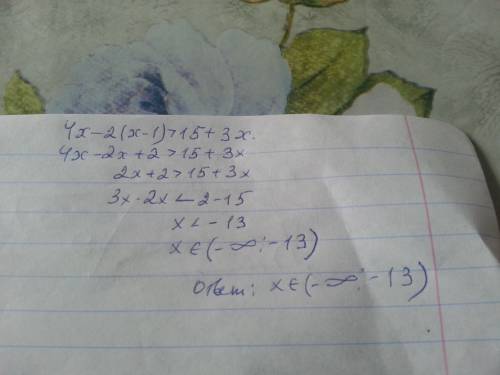 4x-2(x-1)>15+3x.
4x-2x+2>15+3x
2x+2>15+3x
3x-2x<2-15
x<-13
x∈(-∞;-13)
Ответ: x∈(-∞;-13)